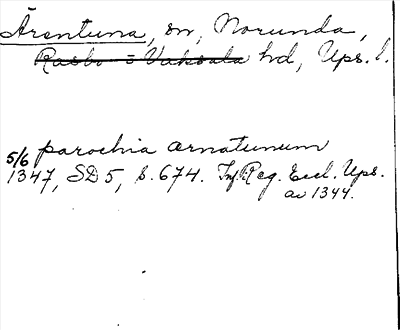 Ärentuna, sn, Norunda,
Rasbo = Vaksala hd, Ups. l.
parochia ærnatunum
5/6 1347, SD 5, s. 674. Inf. Reg. Eccl. Ups.
av 1344.